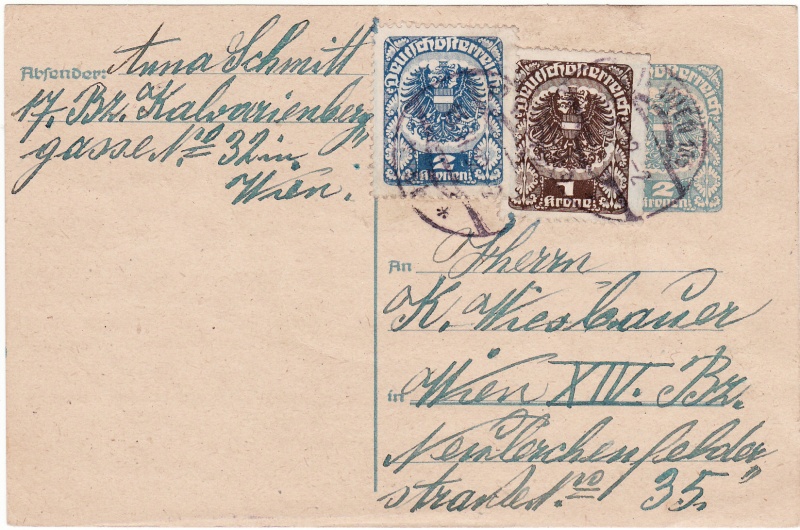 Absender: Anna Schmitt
17. Bz. Kalvarienberg„
gasse No 32 in
Wien.
Deutschösterreich
2
Kronen
Deutschösterreich
1
Krone
2
Kronen
WIEN
An Herrn
K. Wiesbauer
in Wien XIV. Bz.
Neulerchenfelder„
strasse No 35.